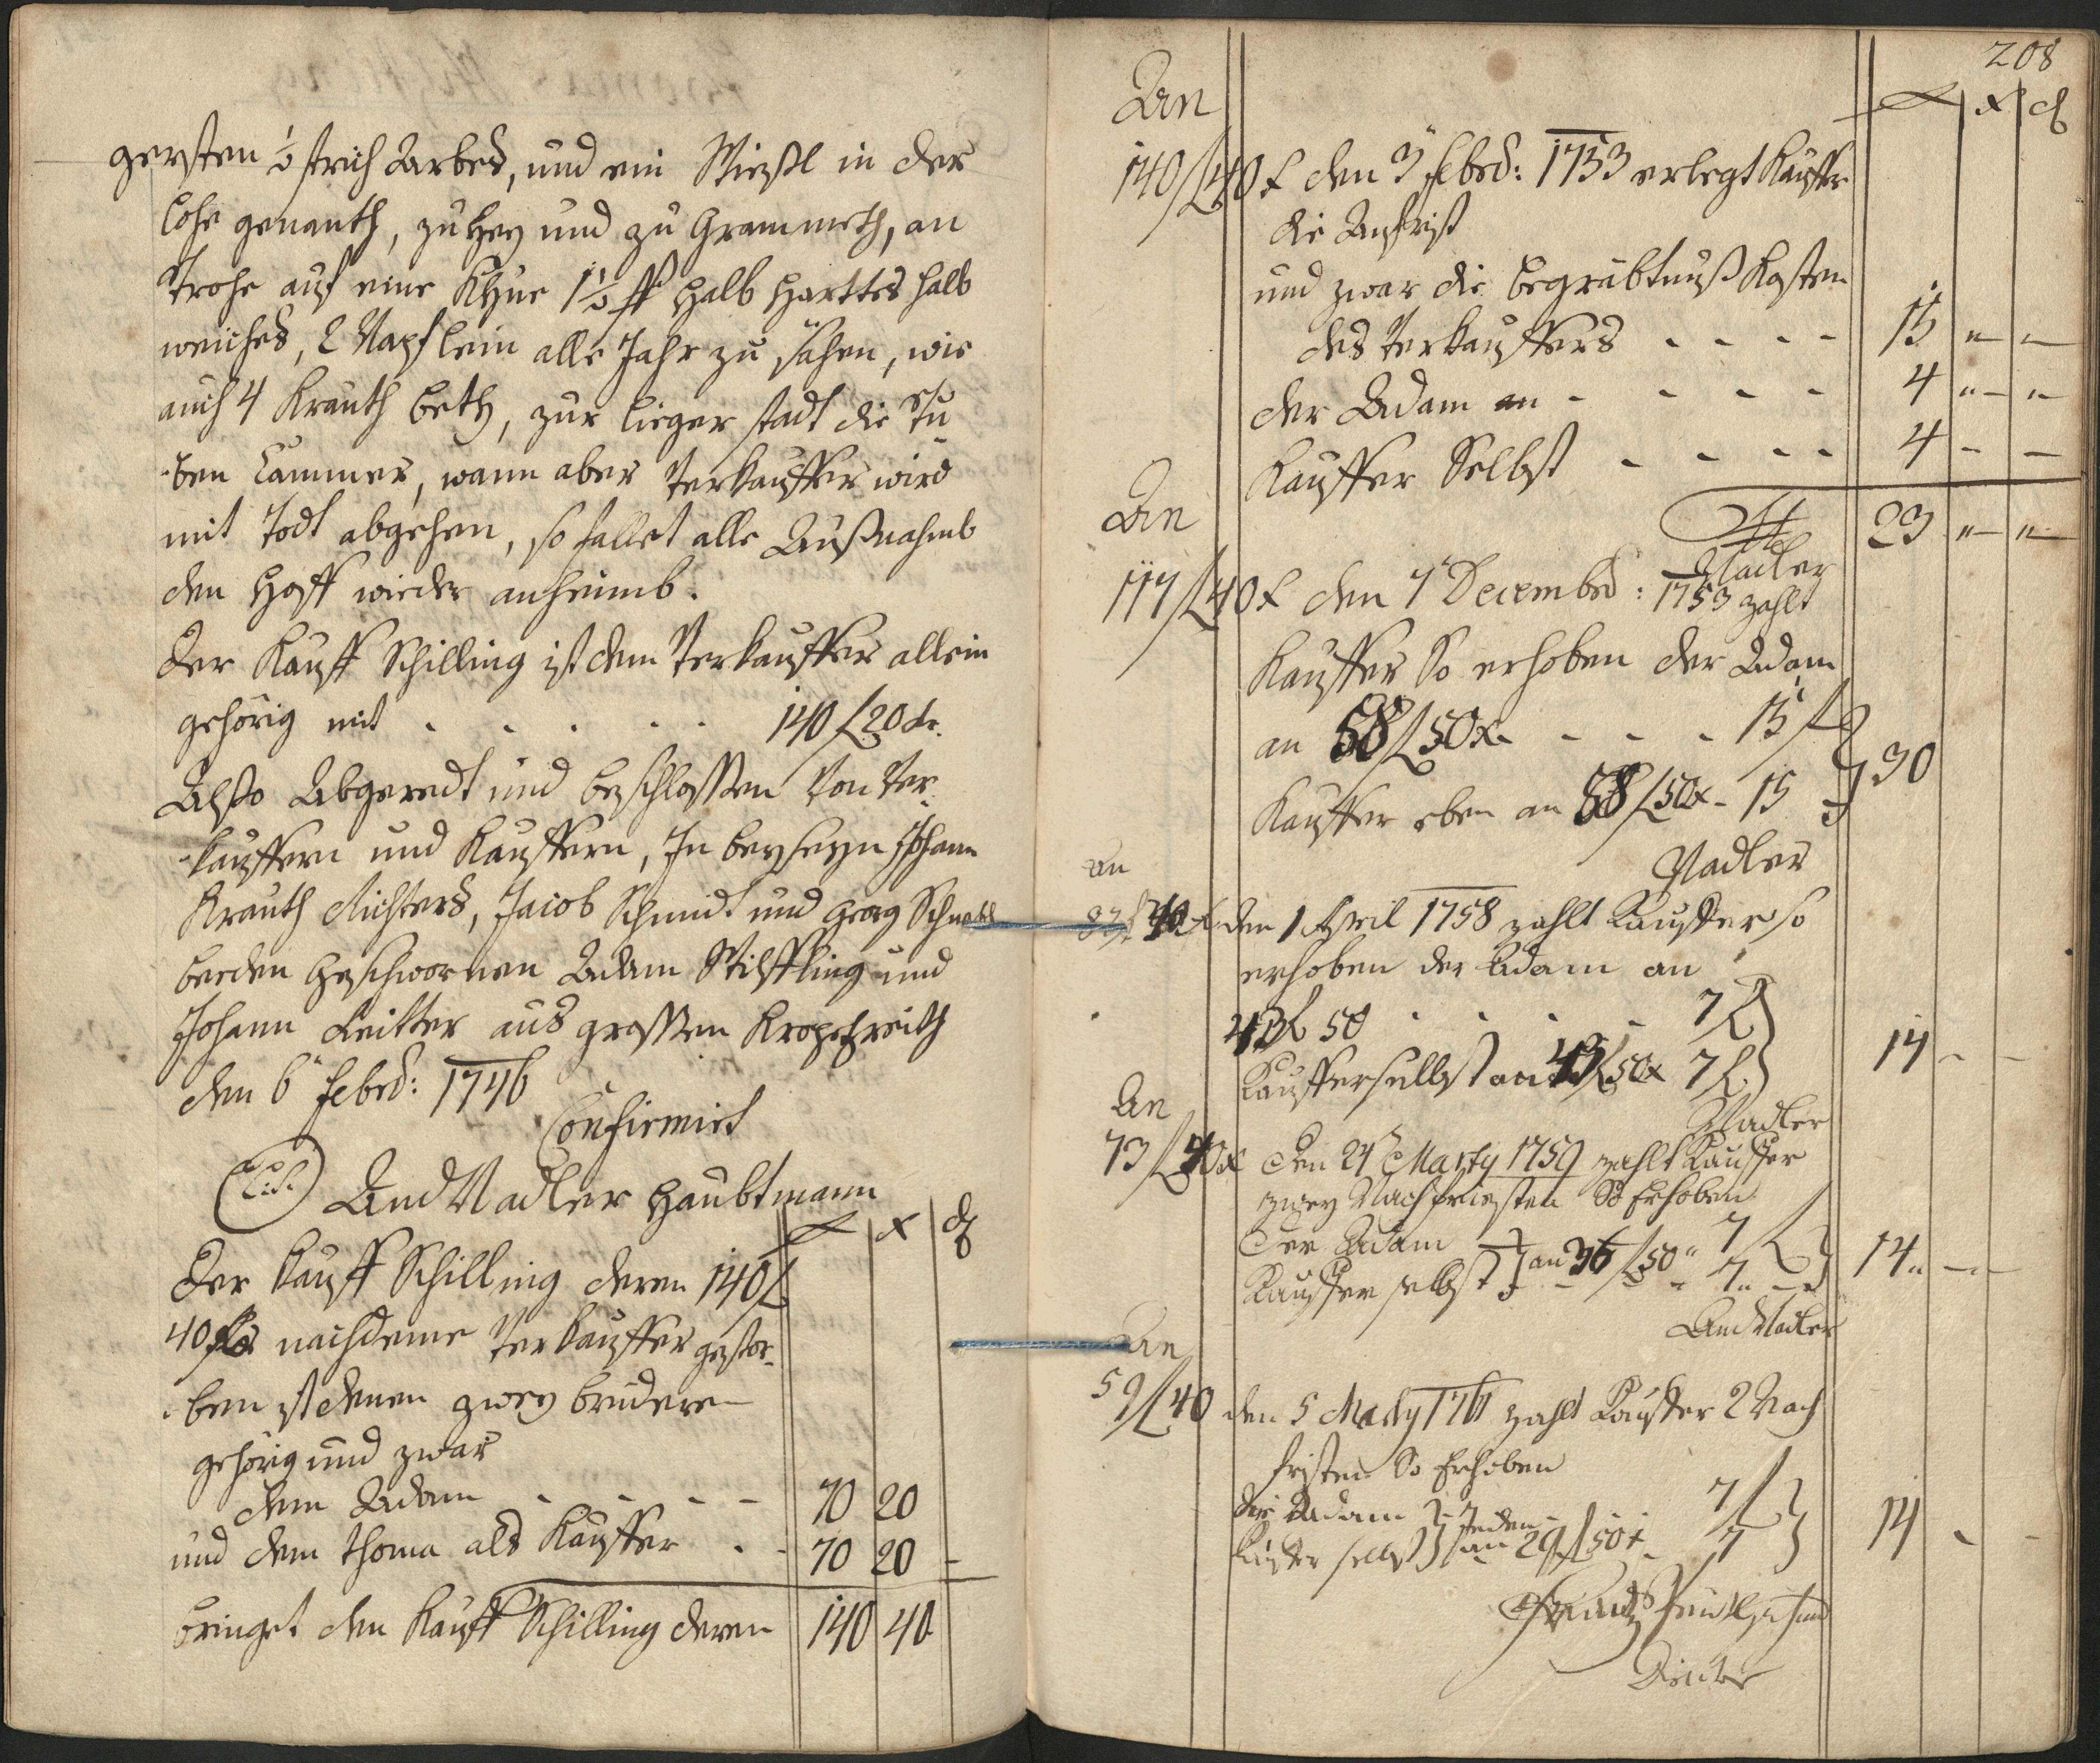 gersten ½ strich Arbes, und ein Wießl in der
Lohe genanth, zu Hey und zu Grammeth, an
Strohe auf eine Khue 1½ ß halb Harttes halb
weiches, 2 Napf lein alle Jahr zu sähen, wie
auch 4 Krauth beth, zur Lieger stadt die Stu-
-ben Cammer, wann aber Verkauffer wird
mit Todt abgehen, so fallet alle Außnahmb
den Hoff wieder anheimb.
Der Kauff Schilling ist dem Verkauffer allein
gehörig mit . . . . . 140 f 20 kr.
Also Abgeredt und beschlossen Von Ver-
-kauffern und Kauffern, In beyseyn Johann
Krauth Richters, Jacob Schmidt und Georg
beeden Geschwornen Adam Wilffling und
Johann Leitter aus grossen Kropfreith
den 6t Febr: 1746
Confirmirt
(L.S.) And Nadler Haubtmann
f x d
Der Kauff Schilling deren 140 f
40 nachdeme Verkauffer gestor-
-ben ist denen zwey brüdern
gehörig und zwar
dem Adam - - - - 70 20
und dem Thoma als Kauffer . - 70 20 -
bringet den Kauff Schilling deren 140 40
208
f x d
An
140 f 40 x den 3t Febr: 1753 erlegt Kauffer
die Anfrist
und zwar die begräbtnuß Kosten
des Verkauffers - - - - 15 " "
der Adam an - - - - 4 " "
Kauffer Selbst - - - - 4 - -
23 " "
Nadler
An
117 f 40 x den 7t Decembr: 1753 zahlt
Kauffer So erhoben der Adam
an 58 f 50 x - - - 15 f
Kauffer eben an 58 f 50 x - 15 30
Nadler
An
87 f 40 x den 1 April 1758 zahlt Kauffer so
erhoben der Adam an
43 f 50 . . . . 7 f
Kauffer selbst an 43 f 50 x 7 f 14 - -
Nadler
An
73 f 40 x Den 24t Marty 1759 zahlt Kauffer
zwey Nachfriesten So Erhoben
Der Adam 7 f
Kauffer selbst an 36 f 50 " 7 " 14 " - -
And Nadler
An
59 f 40 den 5 Marty 1761 zahlt Kauffer 2 Nach
fristen So Erhoben
die Adam jeden 7 f
Kauffer selbst an 29 f 50 x 7 14 - -
Frantz